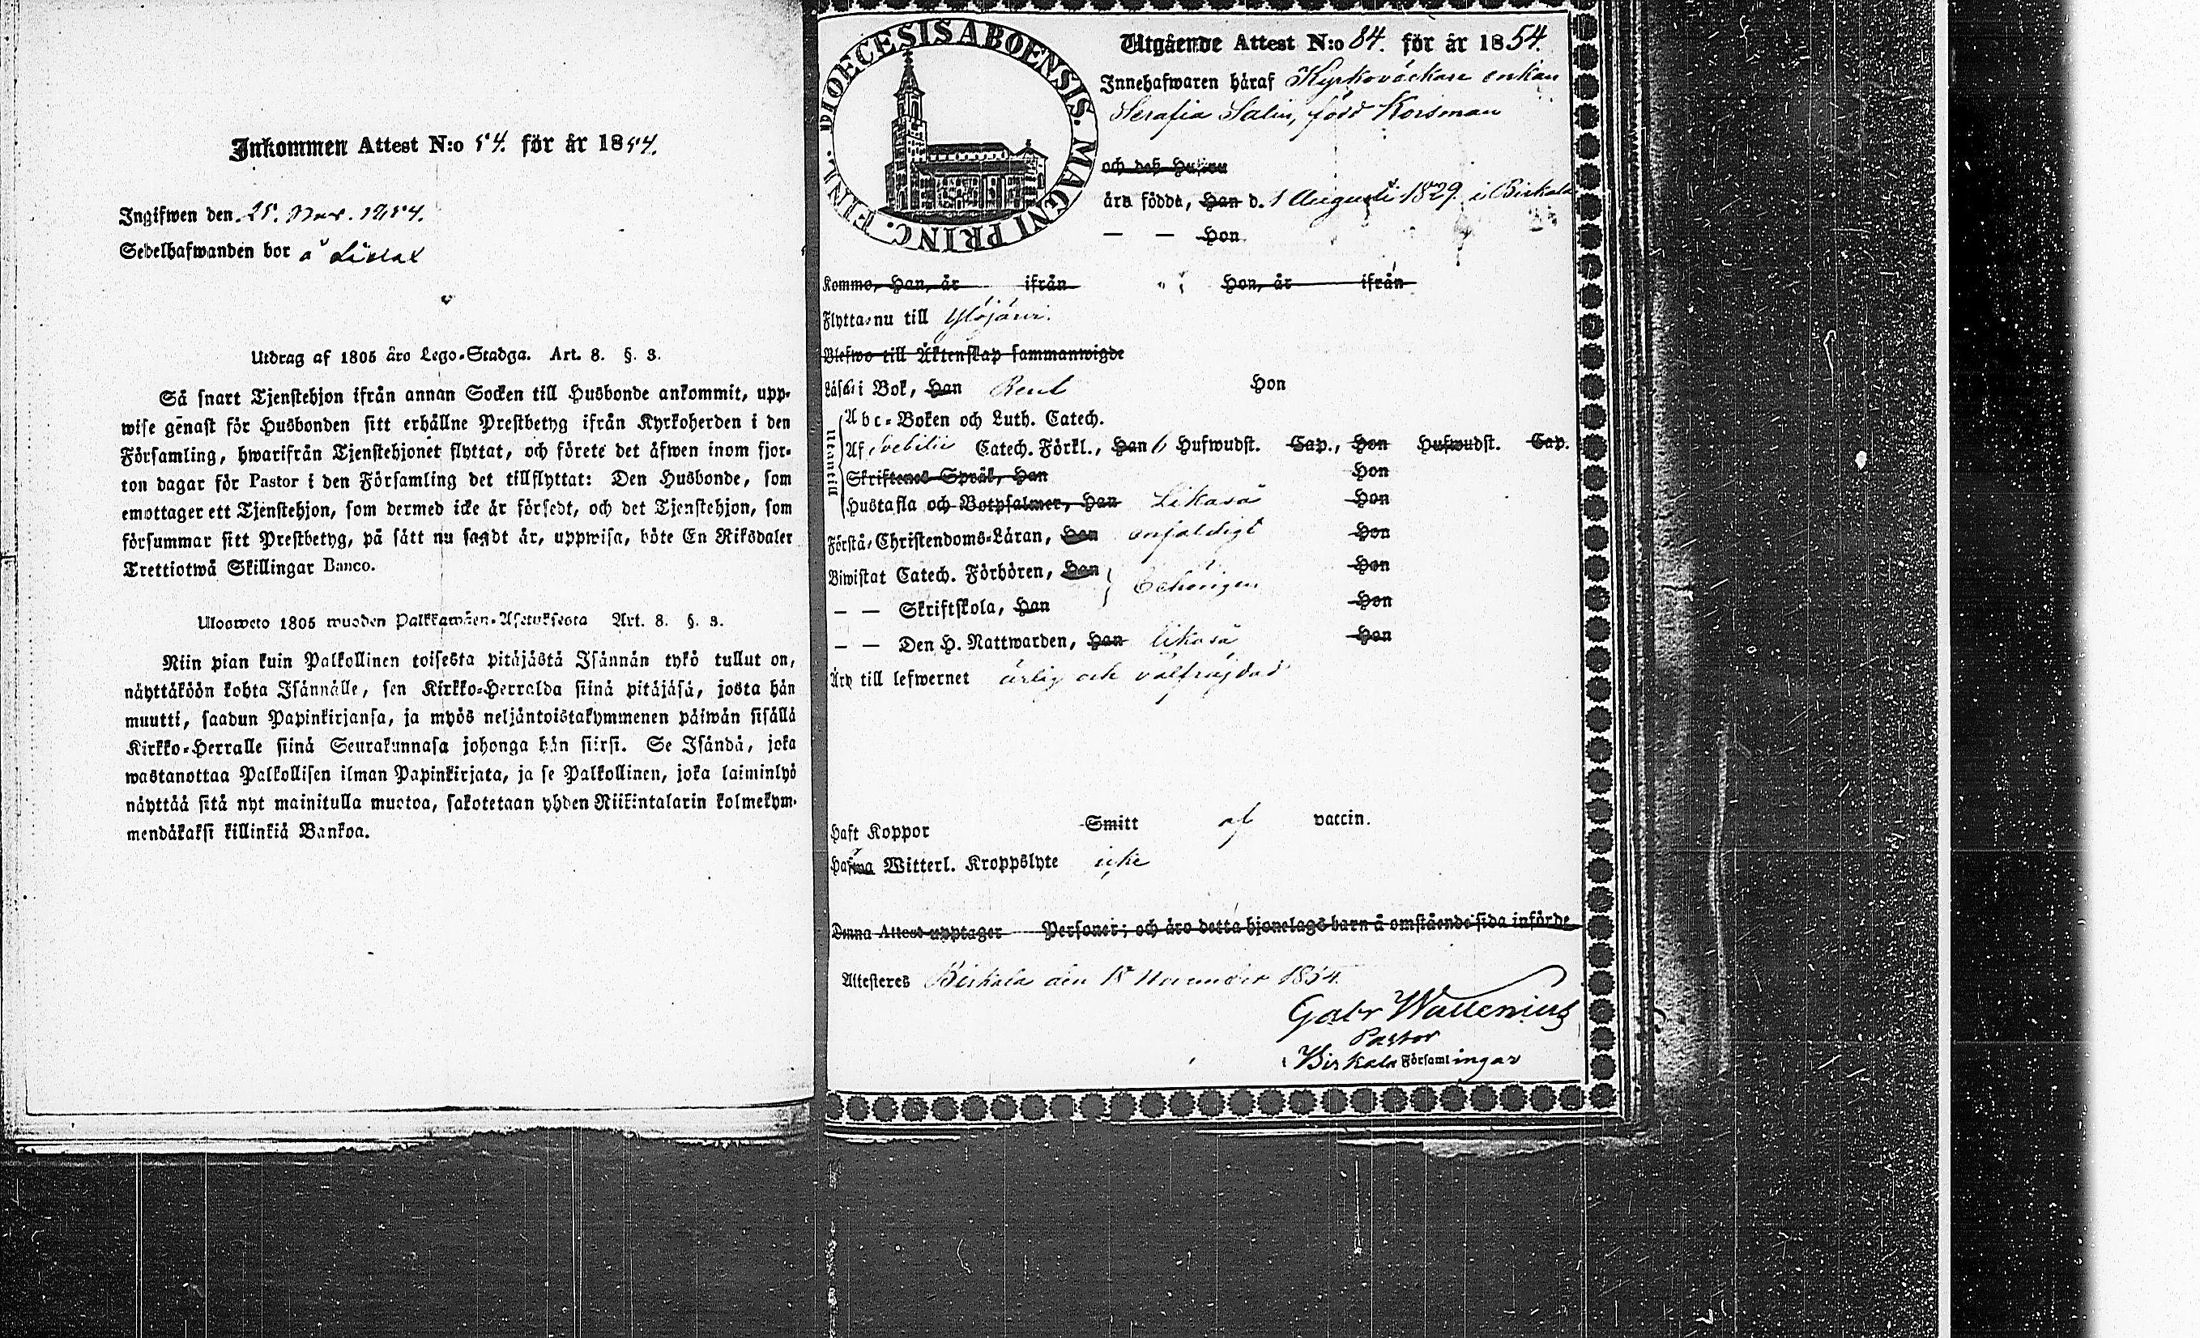 Inkommen Attest N:o 54. för år 1854.
Ingifwen den 25. Nov. 1854.
Sedelhafwanden bor å
Utdrag af 1805 åro Lego-Stadga. Art. 8. §. 3.
Så snart Tjenstehjon ifrån annan Socken till Husbonde ankommit, upp-
wise genast för Husbonden sitt erhållne Prestbetyg ifrån Kyrkoherden i den
Församling, hwarifrån Tjenstehjonet flyttat, och förete det äfwen inom fjor-
ton dagar för Pastor i den Församling det tillflyttat: Den Husbonde, som
emottager ett Tjenstehjon, som dermed icke är försedt, och det Tjenstehjon, som
försummar sitt Prestbetyg, på sätt nu sagdt är, uppwisa, böte En Riksdaler
Trettiotwå Skillingar Banco.
Ulosweto 1805 wuoden Palkkawäen-Asetuksesta Art. 8. §. 3.
Niin pian kuin Palkollinen toisesta pitäjästä Isännän tykö tullut on,
näyttäköön kohta Isännälle, sen Kirkko-Herralda siinä pitäjäsä, josta hän
muutti, saadun Papinkirjansa, ja myös neljäntoistakymmenen päiwän sisällä
Kirkko-Herralle siinä Seurakunnasa johonga hän siirsi. Se Isändä, joka
wastanottaa Palkollisen ilman Papinkirjata, ja se Palkollinen, joka laiminlyö
näyttää sitä nyt mainitulla muotoa, sakotetaan yhden Riikintalarin kolmekym-
mendäkaksi killinkiä Bankoa.
DIOECESIS ABOENSIS. MAGNI PRINC. FINL.
Utgående Attest N:o 84. för år 1854.
Innehafwaren häraf Kyrkoväckare enkan
Serafia Salin, född Korsman
och deß Hustru
äro födde, Han d. 1 Augusti 1829 i Birkala
— — Hon
Kommo, Han, år ifrån Hon, år ifrån
Flytta nu till Ylöjärvi.
Blefwo till Äktenskap sammanwigde
Läsa i Bok, Han Rent Hon
Utantill
Abc-Boken och Luth. Catech.
Af Svebilii Catech. Förkl., Han 6 Hufwudst. Cap., Hon Hufwudst. Cap.
Skriftenes Språk, Han Hon
Hustafla och Botpsalmer, Han Likaså Hon
Förstå Christendoms-Läran, Han enfaldigt Hon
Biwistat Catech. Förhören, Han Hon
— — Skriftskola, Han Behörigen Hon
— — Den H. Nattwarden, Han likaså Hon
Äro till lefwernet ärlig och välfräjdad
Haft Koppor Smitt af vaccin.
Hafwa Witterl. Kroppslyte icke
Denna Attest upptager Personer; och äro detta hjonelags barn å omstående sida införde
Attesteres Birkala den 18 November 1854.
Gabr Wallenius
Pastor
i Birkala Församlingar